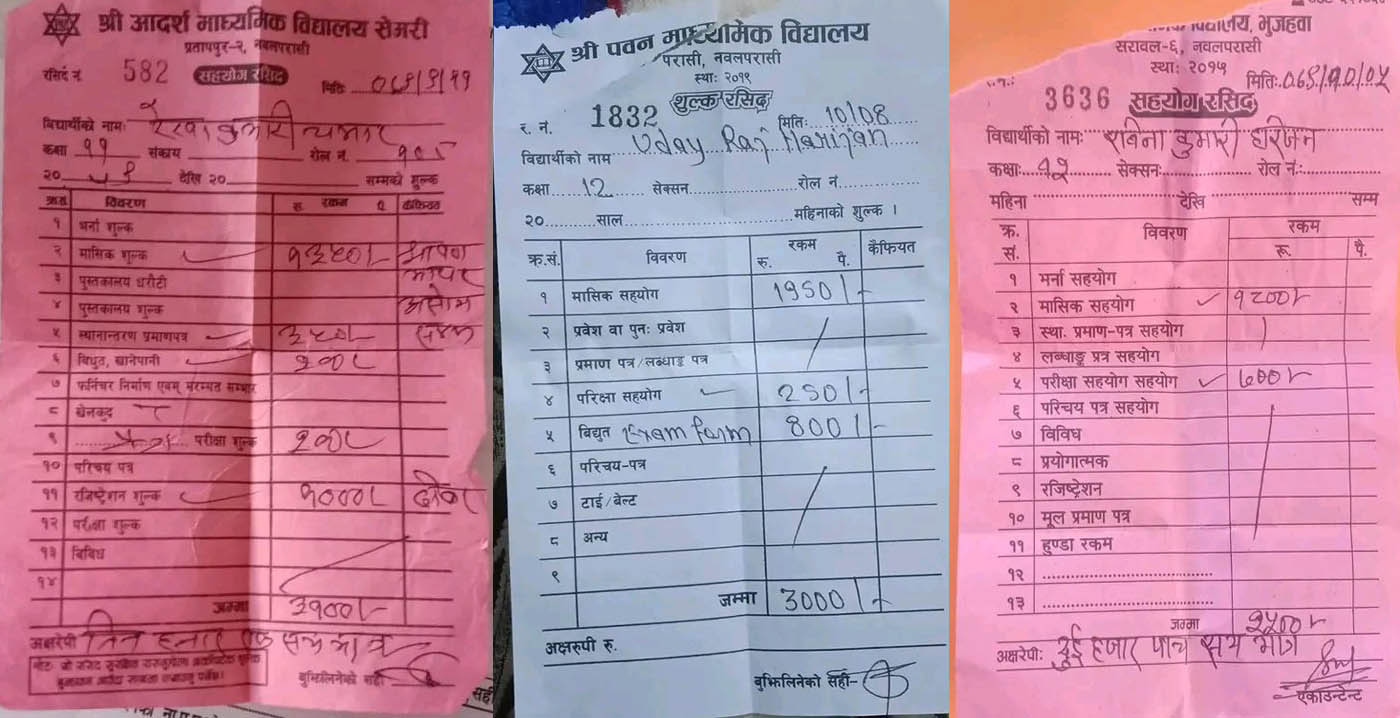 श्री आदर्श माध्यमिक विद्यालय सेमरी
प्रतापपुर-२, नवलपरासी
रसिद नं. 582 सहयोग रसिद मितिः
विद्यार्थीको नामः
कक्षा ११ संकाय रोल नं. १०५
२० देखि २० सम्मको शुल्क
क्र.सं. विवरण रु. रकम पै. कैफियत
१ भर्ना शुल्क
२ मासिक शुल्क १३५०।-
३ पुस्तकालय धरौटी
४ पुस्तकालय शुल्क
५ स्थानान्तरण प्रमाणपत्र ३५०।-
६ विद्युत, खानेपानी २००।-
७ फर्निचर निर्माण एवम् मरम्मत सम्भार
८ खेलकुद
९ परीक्षा शुल्क २००।-
१० परिचय पत्र
११ रजिष्ट्रेशन शुल्क १०००।-
१२ परीक्षा शुल्क
१३ विविध
१४
जम्मा ३१००।-
अक्षरेपी तिन हजार एक सय मात्र
बुझिलिनेको सही
श्री पवन माध्यामेक विद्यालय
परासी, नवलपरासी
स्थाः २०१९
र. नं. 1832 शुल्क रसिद मितिः 10/08
विद्यार्थीको नाम Uday Raj Harijan
कक्षा 12 सेक्सन रोल नं.
२० साल महिनाको शुल्क ।
क्र.सं. विवरण रकम रु. पै. कैफियत
१ मासिक सहयोग 1950/-
२ प्रवेश वा पुनः प्रवेश
३ प्रमाण पत्र/लब्धाङ्क पत्र
४ परिक्षा सहयोग 250/-
५ विद्युत Exam form 800/-
६ परिचय-पत्र
७ टाई/बेल्ट
८ अन्य
९
जम्मा 3000/-
अक्षरुपी रु.
बुझिलिनेको सही-
विद्यालय, भुजहवा
सरावल-६, नवलपरासी
स्थाः २०१५
3636 सहयोग रसिद मितिः ०७९/१०/०५
विद्यार्थीको नामः सबिना कुमारी हरिजन
कक्षाः १२ सेक्सनः रोल नंः
महिना देखि सम्म
क्र.सं. विवरण रकम रू. पै.
१ भर्ना सहयोग
२ मासिक सहयोग १८००।-
३ स्था. प्रमाण-पत्र सहयोग
४ लब्धाङ्क प्रत्र सहयोग
५ परीक्षा सहयोग सहयोग ७००।-
६ परिचय पत्र सहयोग
७ विविध
८ प्रयोगात्मक
९ रजिष्ट्रेशन
१० मूल प्रमाण पत्र
११ हुण्डा रकम
१२
१३
जम्मा २५००।-
अक्षरेपीः दुई हजार पाच सय मात्र
एकाउन्टेन्ट